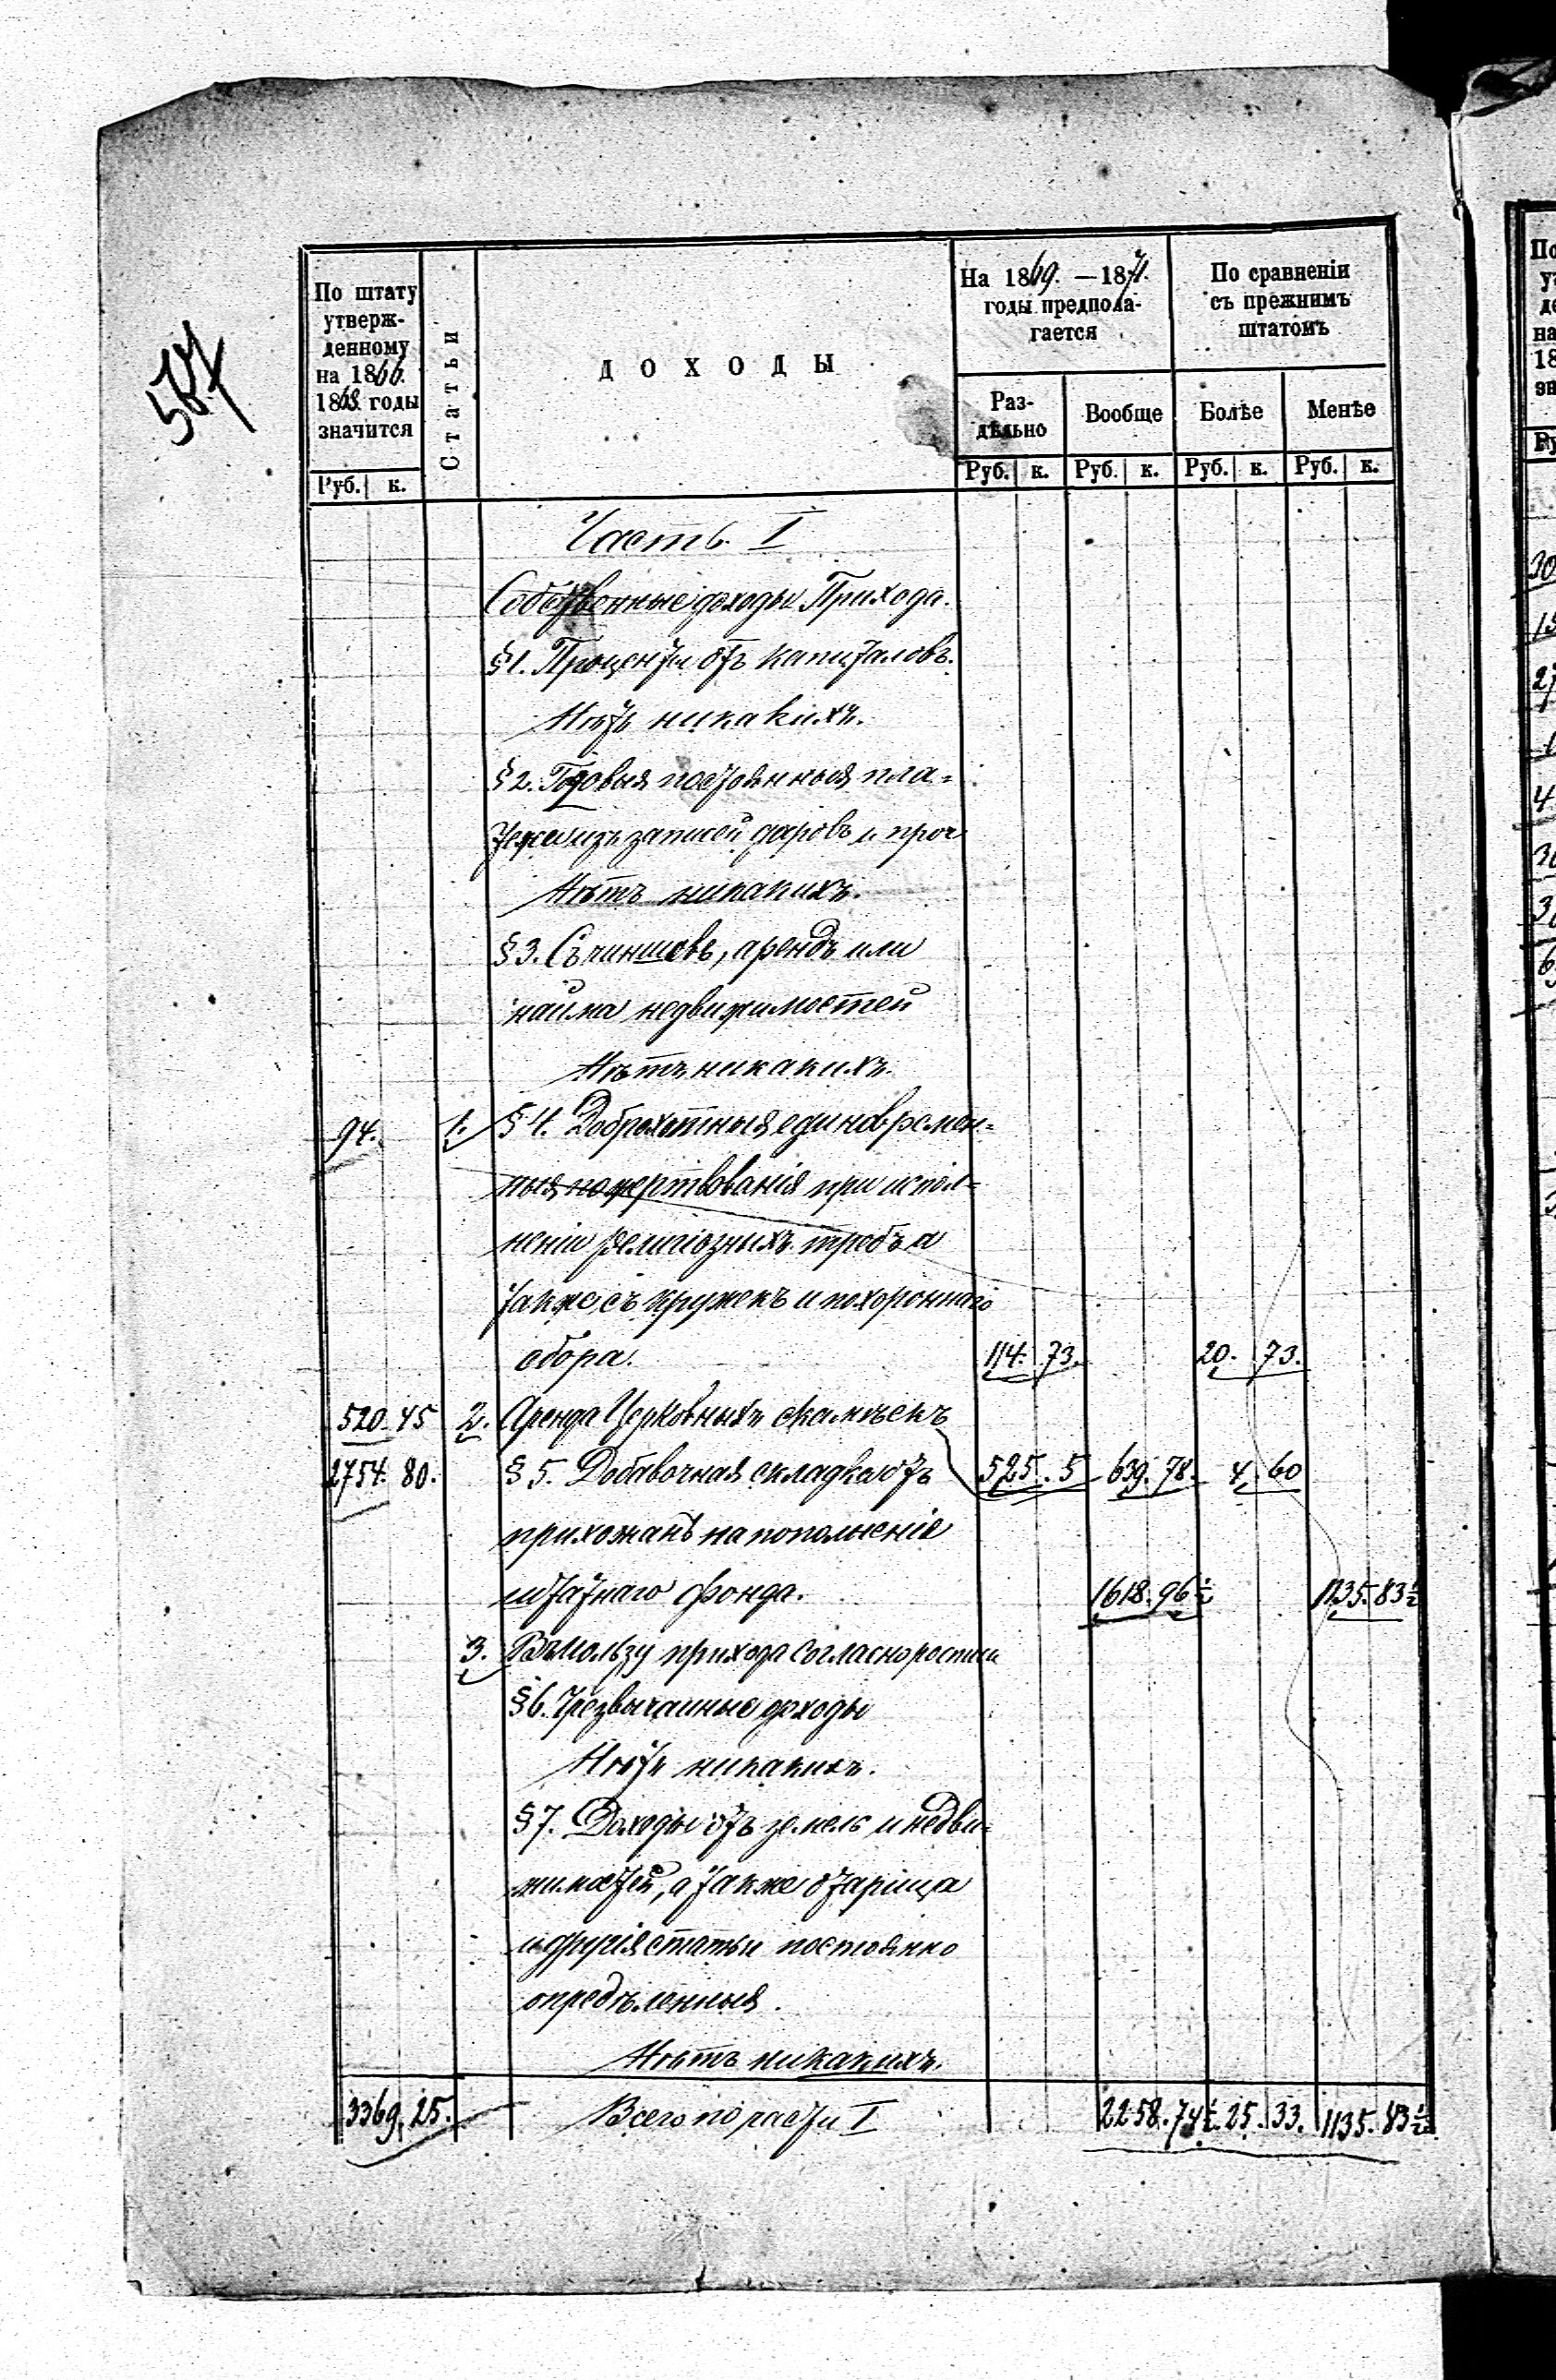 По штату
утверж-
денному
на 1866.
1868. годы
значится
Руб. к.
Статьи
ДОХОДЫ
На 1869. — 1871.
годы предпола-
гается
По сравненіи
съ прежнимъ
штатомъ
Раз-
дѣльно
Вообще
Болѣе
Менѣе
Руб. к. Руб. к. Руб. к. Руб. к.
Часть I
Собственные доходы Прихода.
§ 1. Проценты отъ капиталовъ.
Нѣтъ никакихъ.
§ 2. Годовыя постоянныя пла-
тежи изъ записей даровъ и проч
Нѣтъ никакихъ.
§ 3. Съ чиншовъ, арендъ или
найма недвижимостей
Нѣтъ никакихъ.
94. 1. § 4. Доброхотныя единовремен-
ныя пожертвованія при испол-
неніи религіозныхъ требъ а
также съ кружекъ и похороннаго
сбора. 114. 73. 20. 73.
520. 45 2. Аренда Церковныхъ скамѣекъ
525. 5 639. 78. 4. 60
2754. 80. § 5. Добавочная складка отъ
прихожанъ на пополненіе
штатнаго фонда. 1618. 96½ 1135. 83½
3. Въ пользу прихода согласно росписи
§ 6. Чрезвычайные доходы
Нѣтъ никакихъ.
§ 7. Доходы отъ земель и недви-
жимостей, а также
и другія статьи постоянно
опредѣленныя.
Нѣтъ никакихъ.
3369. 25. Всего по части I 2258. 74½. 25. 33. 1135. 83½